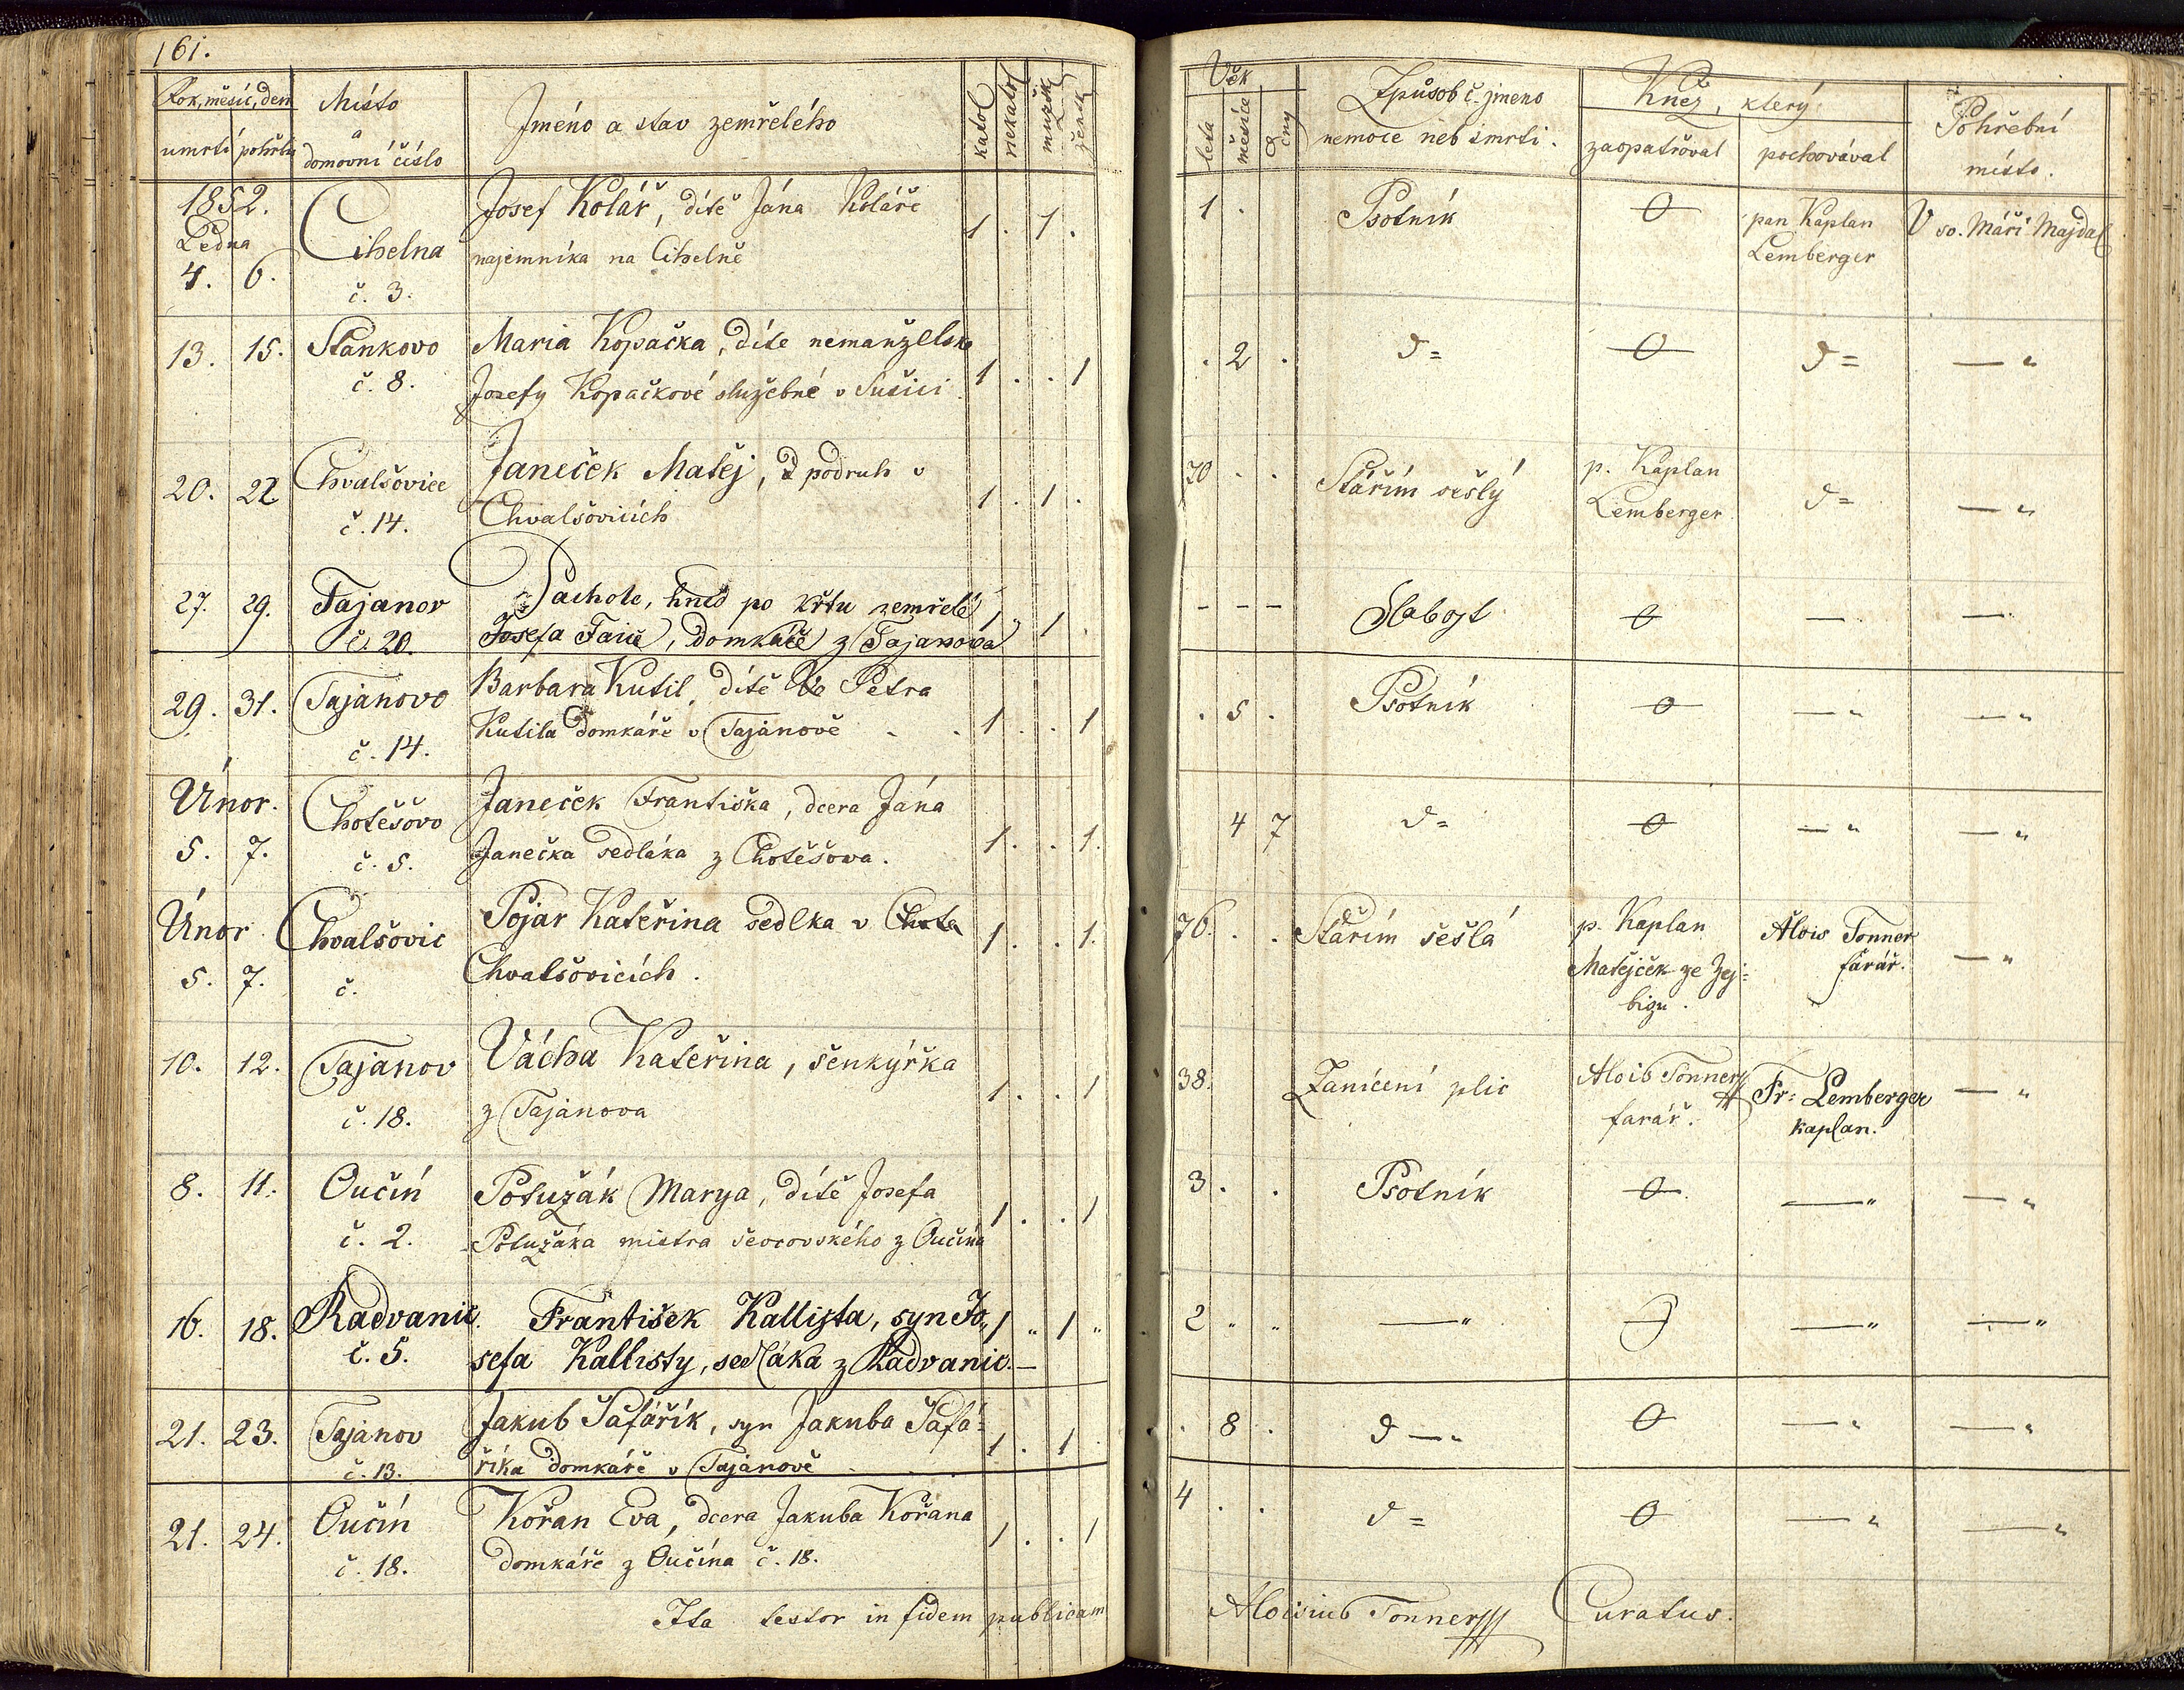 161.
Rok, měsíc, den
umrtí pohřbu
Místo
a
domovní číslo
Jméno a stav zemřelého
katol nekatol mužsk žensk
1852.
Ledna
4. 6.
Cihelna
č. 3.
Josef Kolář, dítě Jána Koláře
najemníka na Cihelně
1 . 1 .
13. 15. Stankovo
č. 8.
Maria Kopačka, díte nemanželsk
Josefy Kopačkové služebné v Sušici
1 . . 1
20. 22 Chvalšovice
č. 14.
Janeček Matěj, podruh v
Chvalšovicích
1 . 1 .
27. 29. Tajanov
č. 20.
Pachole, hned po křtu zemřelé
Josefa , domkáře z Tajanova
1 " 1
29. 31. Tajanovo
č. 14.
Barbara Kutil, dítě Petra
Kutila domkáře v Tajanově
1 . . 1
Únor.
5. 7.
Chotěšovo
č. 5.
Janeček Františka, dcera Jána
Janečka sedláka z Chotěšowa.
1 . . 1.
Únor
5. 7.
Chvalšovic
č.
Pojar Kateřina sedlka v
Chvalšovicích.
1 . . 1.
10. 12. Tajanov
č. 18.
Vácha Kateřina, šenkýřka
z Tajanova
1 . . 1
8. 11. Oučín
č. 2.
Potužák Marya, dítě Josefa
Potužáka mistra ševcovského z Oučína
1 . . 1
16. 18. Radvanic.
č. 5.
František Kallista, syn Jo„
sefa Kallisty, sedláka z Radvanic. —
1 " 1 "
21. 23. Tajanov
č. 13.
Jakub Šafářík, syn Jakuba Šafá-
říka domkáře v Tajanově
1 . 1 .
21. 24. Oučín
č. 18.
Kořan Eva, dcera Jakuba Kořana
domkáře z Oučína č. 18.
1 . . 1
Ita testor in fidem publicam
Věk
leta měsíce dny
Způsob č. jmeno
nemoce neb smrti.
Kněz, který
zaopatřoval pochovával
Pohřební
místo.
1 . Psotník 0 pan Kaplan
Lemberger
V sv. Máří Majdal
. 2 . d= 0 d= — "
70 . . Stářím sešlý p. Kaplan
Lemberger
d= — "
- - - Slabost 0 — —
. 5 . Psotník 0 — " — "
4 7 d= 0 — " — "
76. . . Stářím sešlá p. Kaplan
Matějček ze Zej-
bizu.
Alois Tonner
farář.
— "
38. Zanícení plic Alois Tonner
farář.
Fr: Lemberger
kaplan.
— "
3 . . Psotník 0 — " — "
2 " " — " 0 — " — "
. 8 . d — " 0 — " — "
4 . . d= 0 — " — "
Aloisius Tonner Curatus.